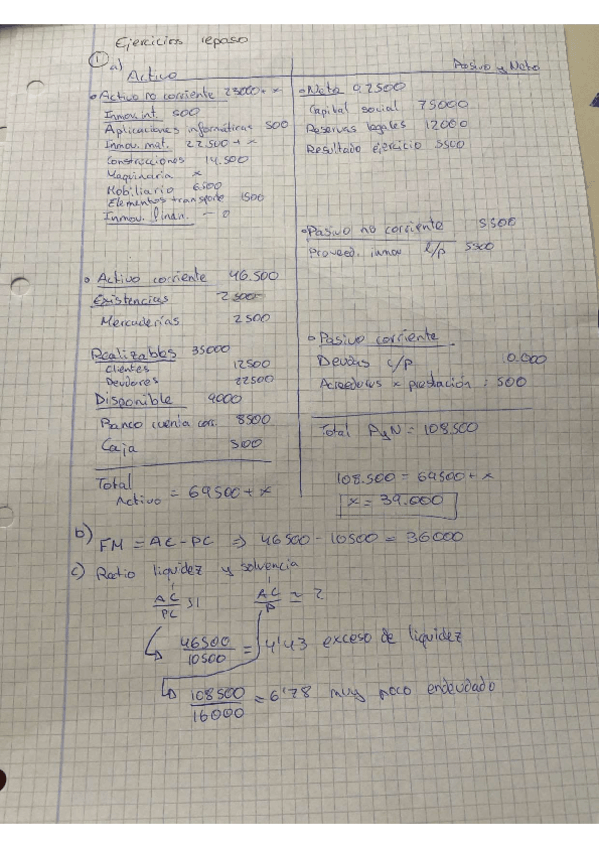 Ejercicios repaso
1 a)
Activo
Pasivo y Neto
• Activo no corriente 23000 + x
Inmov. int. 500
Aplicaciones informáticas 500
Inmov. mat. 22.500 + x
Construcciones 14.500
Maquinaria x
Mobiliario 6.500
Elementos transporte 1500
Inmov. finan. – 0
• Activo corriente 46.500
Existencias 2500
Mercaderías 2500
Realizables 35000
Clientes 12500
Deudores 22500
Disponible 9000
Banco cuenta corr. 8500
Caja 500
Total Activo = 69500 + x
• Neto 92500
Capital social 75000
Reservas legales 12000
Resultado ejercicio 5500
• Pasivo no corriente 5.500
Proveed. inmov l/p 5500
• Pasivo corriente
Deudas c/p 10.000
Acreedores x prestación : 500
Total PyN = 108.500
108.500 = 69500 + x
x = 39.000
b) FM = AC - PC ⇒ 46500 - 10500 = 36000
c) Ratio liquidez y solvencia
AC/PC ≥ 1 AC/P ≃ 2
46500/10500 = 4'43 exceso de liquidez
108500/16000 = 6'78 muy poco endeudado